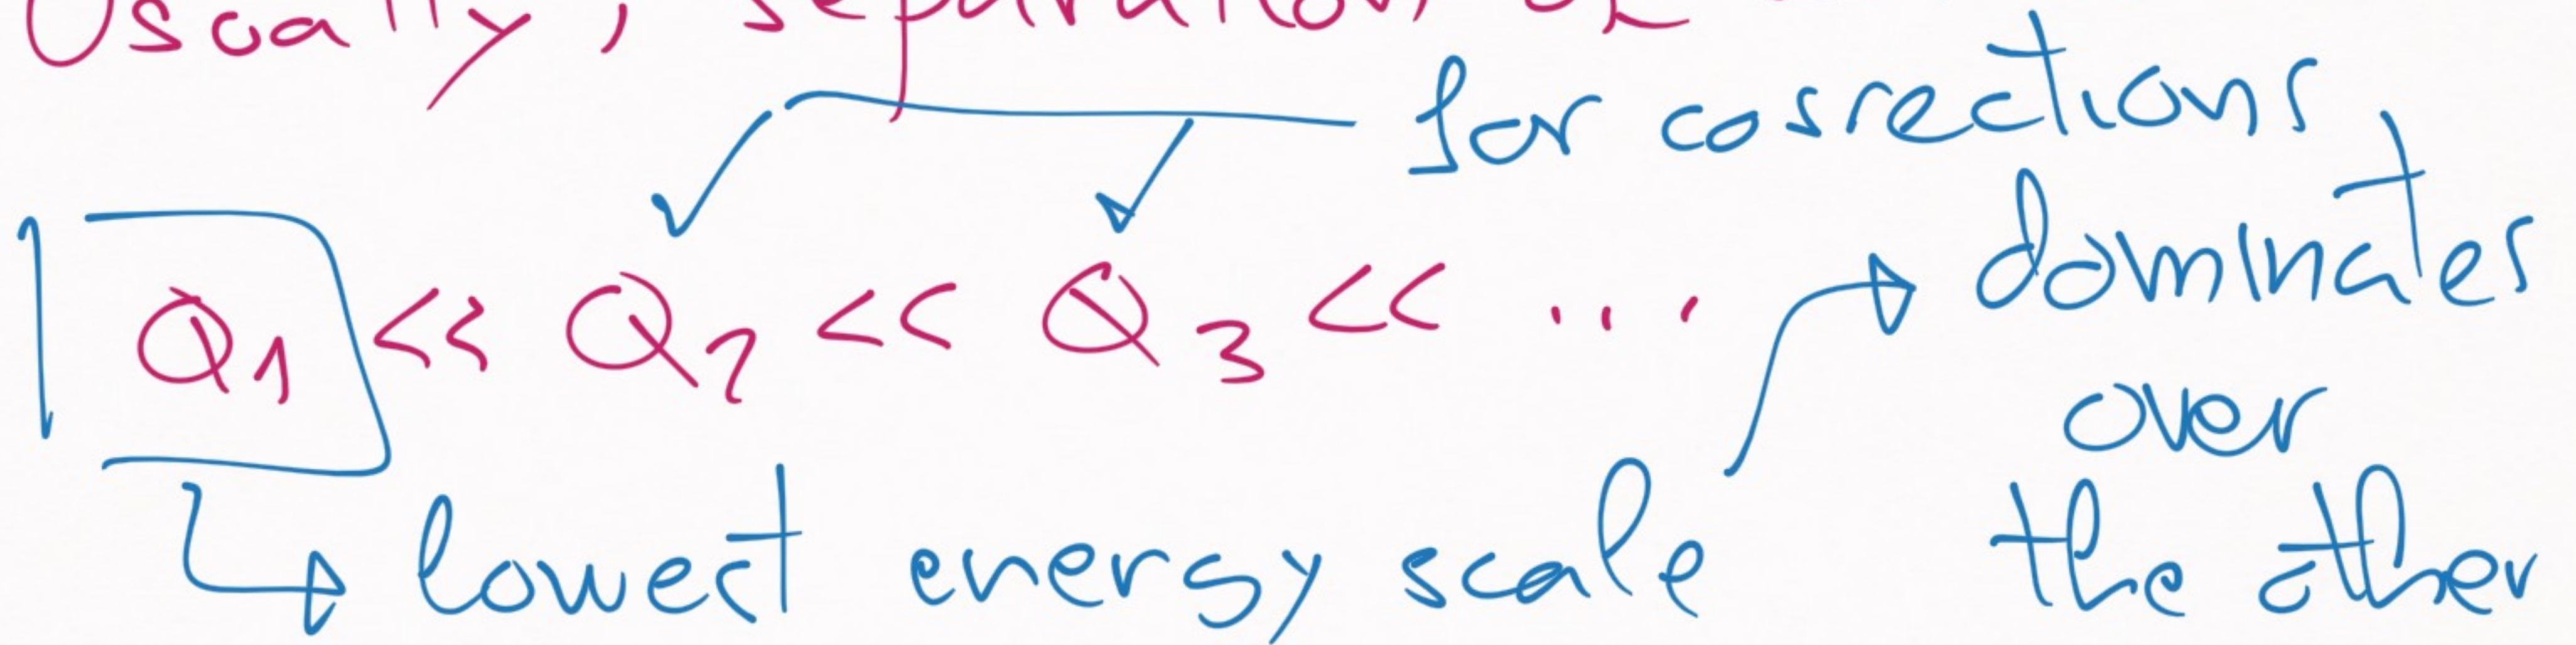 Usually, separation of
for corrections
Q1 << Q2 << Q3 << ...
dominates
over
the other
lowest energy scale